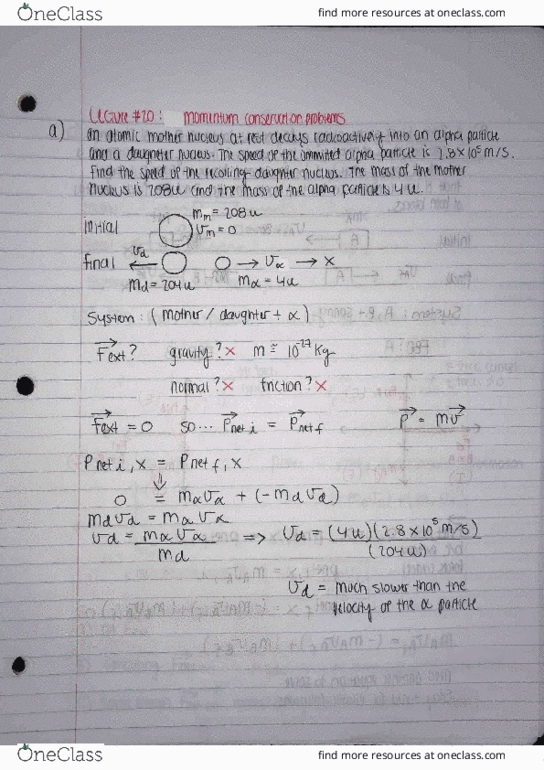 OneClass
find more resources at oneclass.com
Lecture #20: momentum conservation problems
a) an atomic mother nucleus at rest decays radioactively into an alpha particle
and a daughter nucleus. The speed of the emmited alpha particle is 2.8×10⁵ m/s.
Find the speed of the recoiling daughter nucleus. The mass of the mother
nucleus is 208u and the mass of the alpha particle is 4u.
initial
m_m = 208u
v_m = 0
final v_d ← → v_α → x
m_d = 204u m_α = 4u
System: (mother / daughter + α)
F⃗ext? gravity? × m ≅ 10⁻²⁷ kg
normal? × friction? ×
F⃗ext = 0 so... P⃗net i = P⃗net f P⃗ = mv⃗
Pnet i, x = Pnet f, x
⇓
0 = m_α v_α + (-m_d v_d)
m_d v_d = m_α v_α
v_d = m_α v_α / m_d => v_d = (4u)(2.8×10⁵ m/s) / (204u)
v_d = much slower than the
velocity of the α particle
OneClass
find more resources at oneclass.com